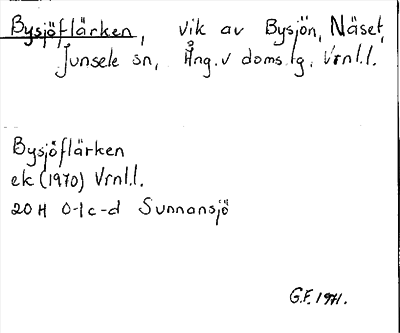 Bysjöflärken, vik av Bysjön, Näset,
Junsele sn, Ång.v doms.lg. Vrnl.l.
Bysjöflärken
ek (1970) Vrnl.l.
20 H 0-1 c-d Sunnansjö
G.F. 1971.